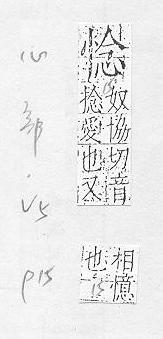 惗
奴協切音
捻愛也又
相憶
也
心部.V5 P15